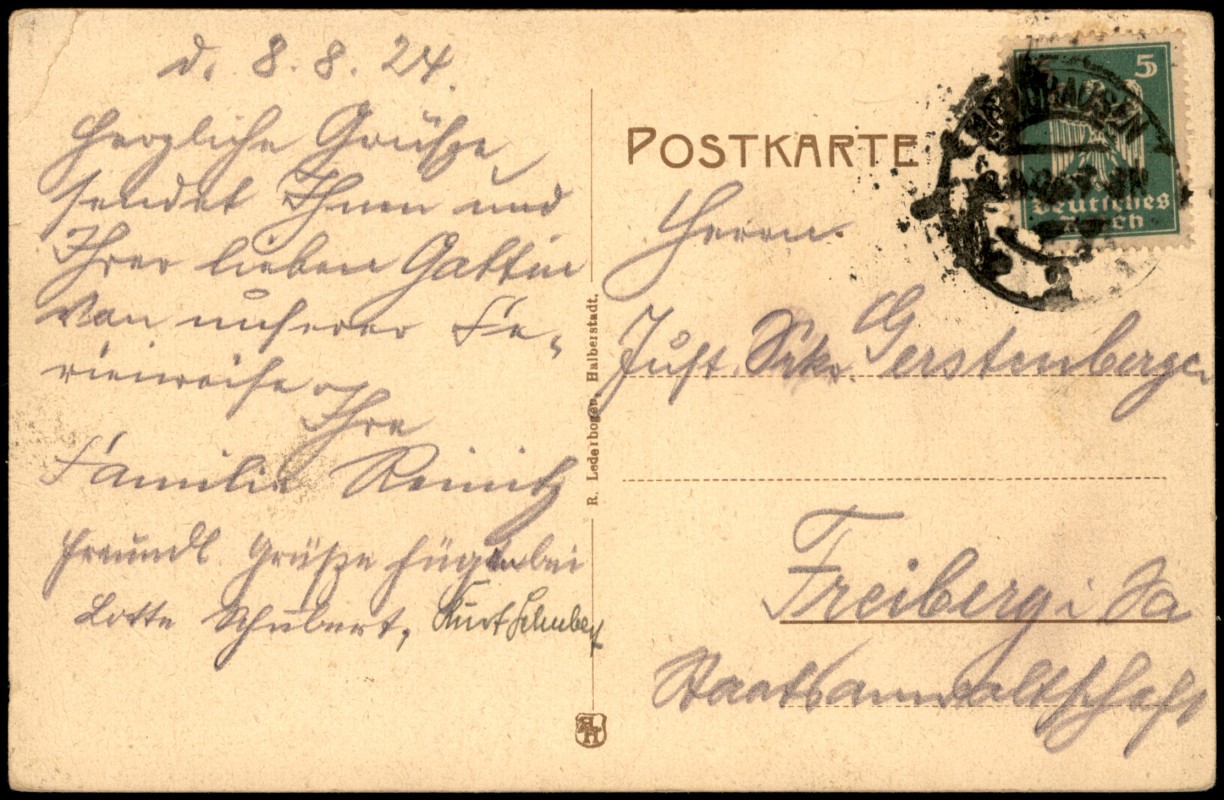 d. 8.8.24.
Herzliche Grüsse
sendet Ihnen und
Ihrer lieben Gattin
von unserer Fe-
rienreise
Ihre
Familie Reinitz
Freundl. Grüße fügen bei
Lotte Schubert, Kurt Schubert
R. Lederbogen, Halberstadt.
POSTKARTE
5
Deutsches
Reich
Herrn
Just. Sekr. Gerstenberger
Freiberg i Sa
Staatsanwaltschaft